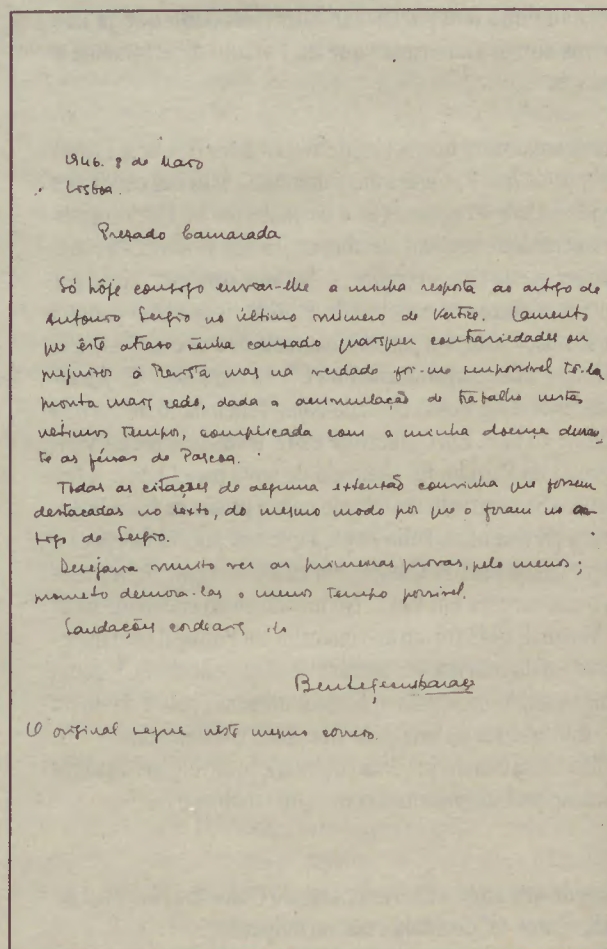 1946. 8 de Maio
Lisboa.
Prezado Camarada
Só hôje consigo enviar-lhe a minha resposta ao artigo de
António Sérgio no último número de Vertice. Lamento
que êste atraso tenha causado quaisquer contrariedades ou
prejuizos à Revista mas na verdade foi-me impossível tê-la
pronta mais cedo, dada a acumulação de trabalho nestes
ultimos tempos, complicada com a minha doença duran-
te as férias da Pascoa.
Todas as citações de alguma extensão convinha que fossem
destacadas no texto, do mesmo modo por que o foram no ar-
tigo de Sergio.
Desejaria muito ver as primeiras provas, pelo menos;
prometo demora-las o menos tempo possivel.
Saudações cordiais do
Bento Jesus Caraça
O original segue neste mesmo correio.